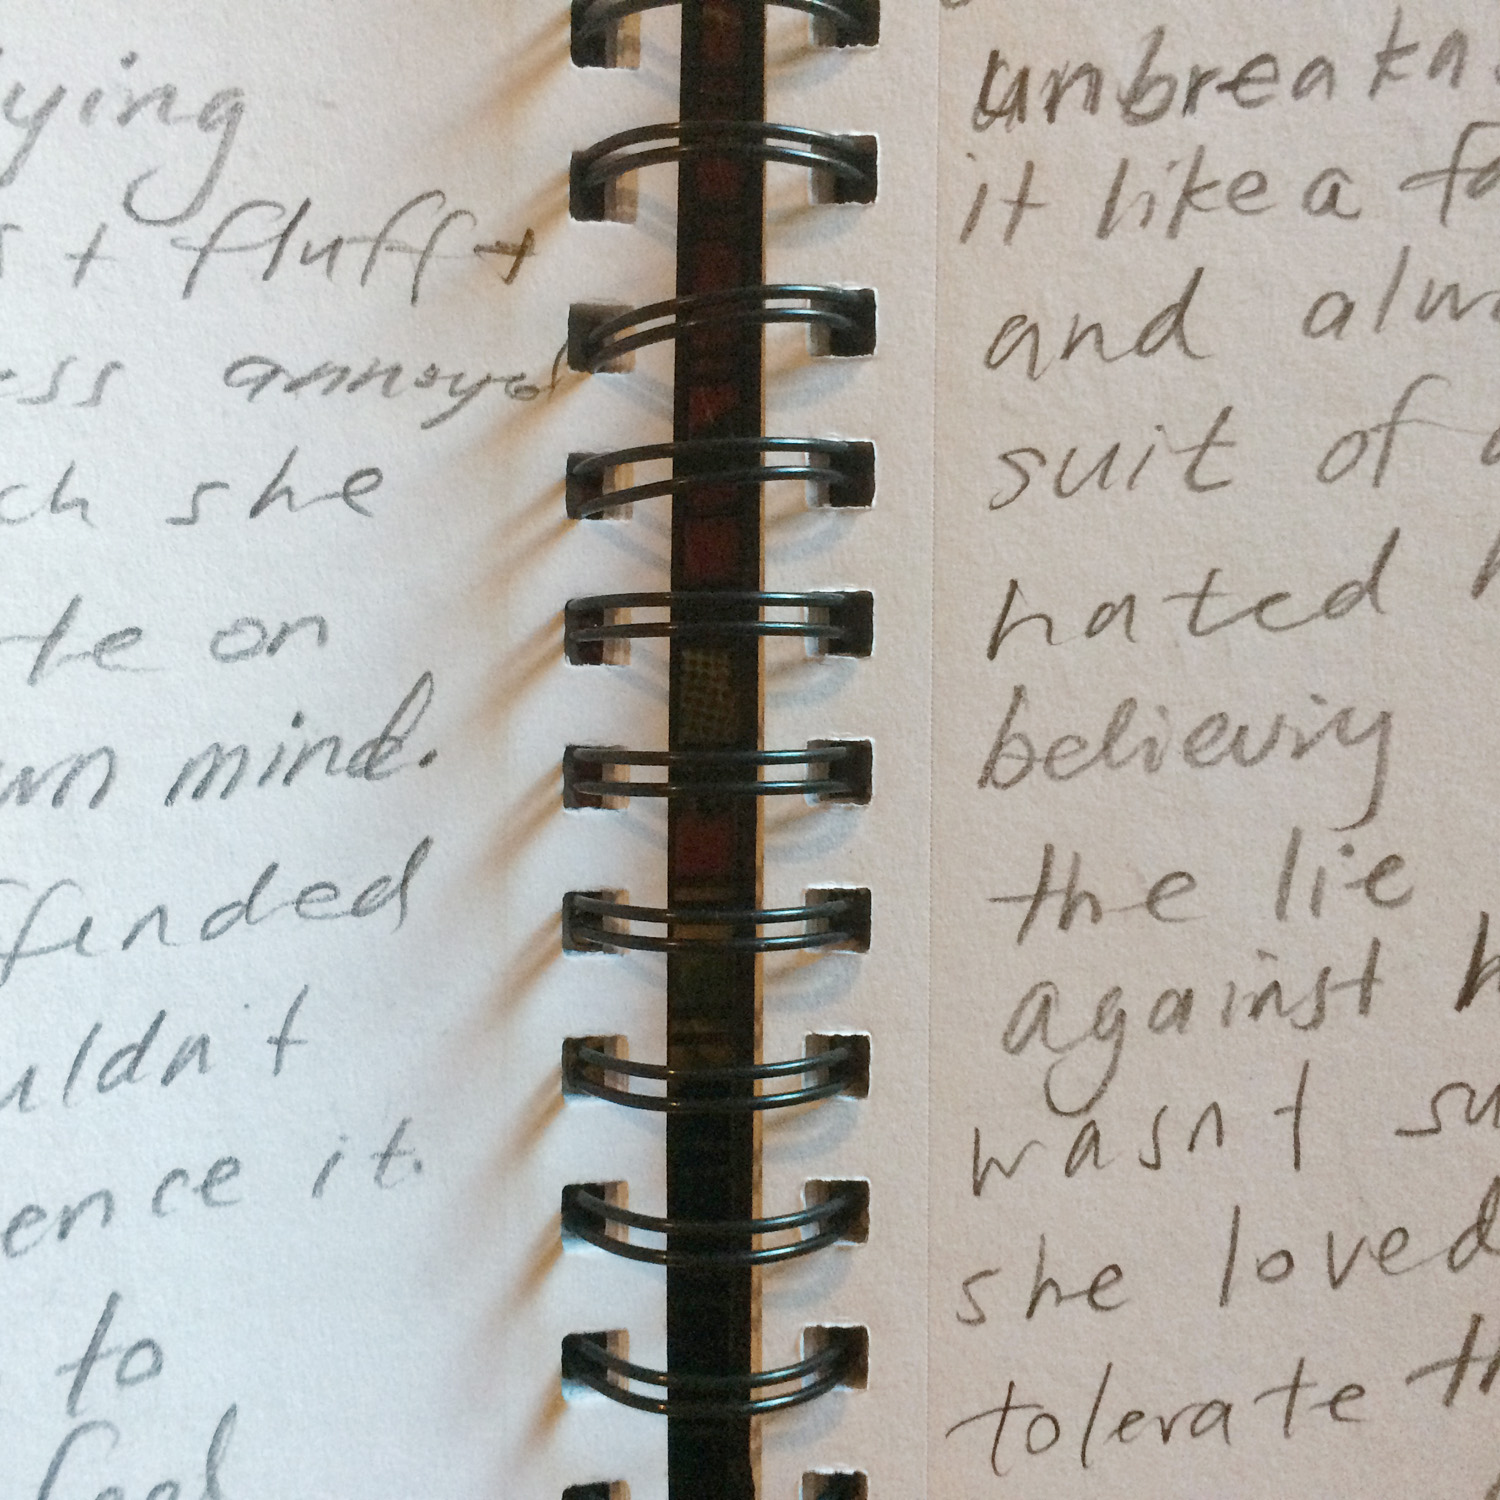 ying
s + fluff +
ess annoyed
ch she
te on
wn mind.
ffended
uldn't
ence it.
to
feel
unbreaka
it like a fa
and alwa
suit of a
hated h
believing
the lie
against h
wasn't su
she loved
tolerate th